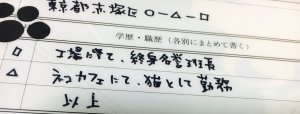 東京都赤塚区〇-△-□
学歴・職歴（各別にまとめて書く）
□ 工場にて、終身名誉班長
△ ネコカフェにて、猫として勤務
以上